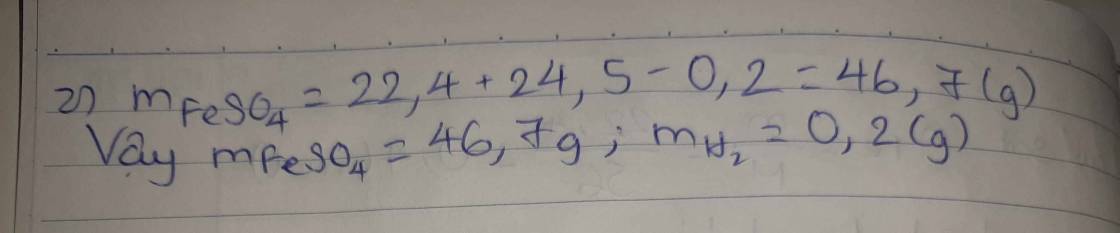 => mFeSO₄ = 22,4 + 24,5 - 0,2 = 46,7 (g)
Vậy mFeSO₄ = 46,7g ; mH₂ = 0,2 (g)